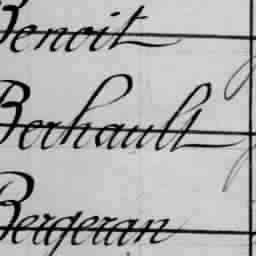 Benoit
Berhault
Bergeran